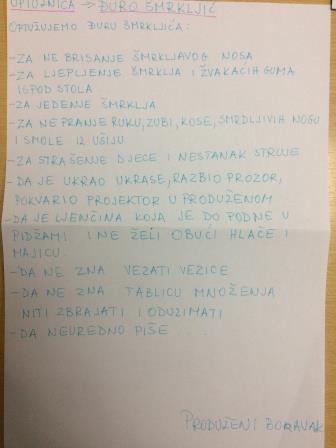 OPTUŽNICA → ĐURO ŠMRKLJIĆ
OPTUŽUJEMO ĐURU ŠMRKLJIĆA:
- ZA NE BRISANJE ŠMRKLJAVOG NOSA
- ZA LJEPLJENJE ŠMRKLJA I ŽVAKAĆIH GUMA
ISPOD STOLA
- ZA JEDENJE ŠMRKLJA
- ZA NE PRANJE RUKU, ZUBI, KOSE, SMRDLJIVIH NOGU
I SMOLE IZ UŠIJU
- ZA STRAŠENJE DJECE I NESTANAK STRUJE
- DA JE UKRAO UKRASE, RAZBIO PROZOR,
POKVARIO PROJEKTOR U PRODUŽENOM
- DA JE LJENČINA KOJA JE DO PODNE U
PIDŽAMI I NE ŽELI OBUĆI HLAČE I
MAJICU.
- DA NE ZNA VEZATI VEZICE
- DA NE ZNA TABLICU MNOŽENJA
NITI ZBRAJATI I ODUZIMATI
- DA NEUREDNO PIŠE....
PRODUŽENI BORAVAK